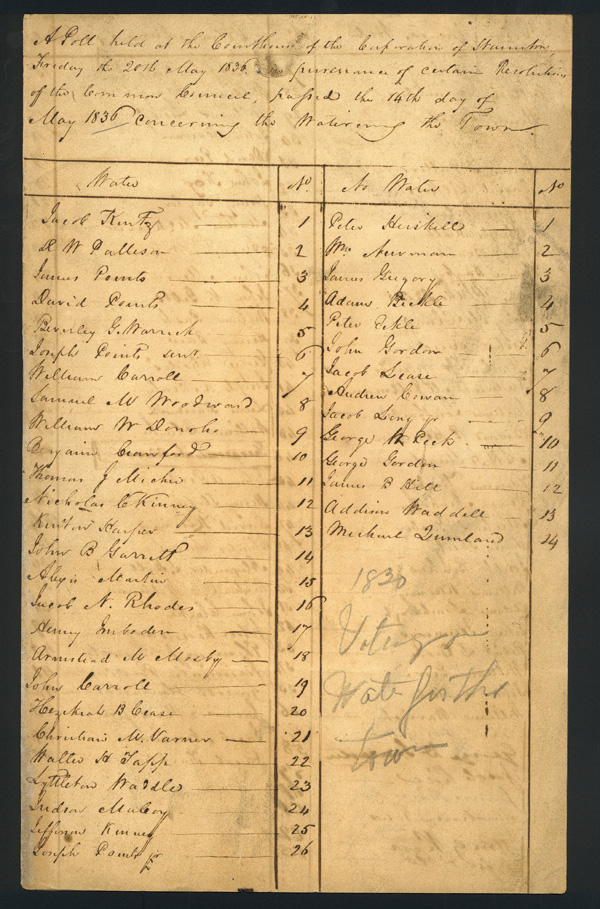 A Poll held at the Courthouse of the Corporation of Staunton
Friday the 20th May 1836 in pursuance of certain Resolutions
of the Common Council, passed the 14th day of
May 1836 concerning the Watering the Town.
Water No. No Water No
Jacob Kurtz 1 Peter Heiskell 1
R W Patteson 2 Wm Newman 2
James Points 3 James Gregory 3
David Points 4 Adam Bickle 4
Beverley G. Warwick 5 Peter Eckle 5
Joseph Points senr 6 John Gordon 6
William Carroll 7 Jacob Lease 7
Samuel M Woodward 8 Andrew Cowan 8
William W Donoho 9 Jacob Long jr 9
Benjamin Crawford 10 George M Peck 10
Thomas J Michie 11 George Gordon 11
Nicholas C Kinney 12 James B Hill 12
Kenton Harper 13 Addison Waddell 13
John B Garrett 14 Michael Quinland 14
Alexis Martin 15
Jacob N. Rhodes 16
Henry Imboden 17
Armstead M Mosby 18
John Carroll 19
Hezekiah B Cease 20
Christian M. Varner 21
Walter H Tapp 22
Lyttleton Waddle 23
Judson 24
Jefferson Kinney 25
Joseph Points jr 26
1830
Voting
Water for the
town